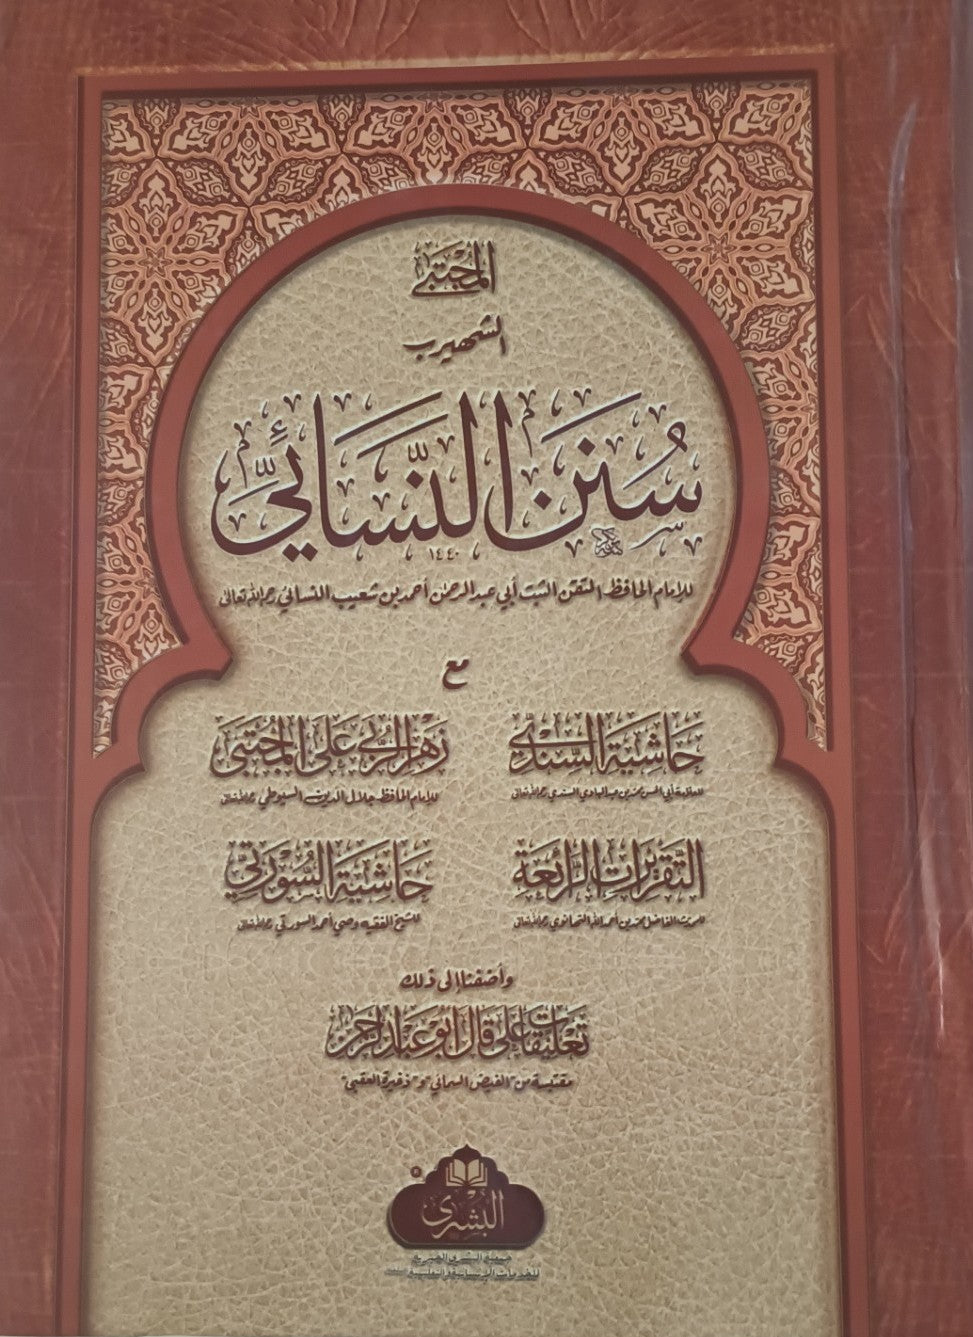 المُجْتَبَى
الشهير بـ
سُنَنِ النَّسَائِيِّ
١٤٤٠
للإمام الحافظ المتقن الثبت أبي عبد الرحمن أحمد بن شعيب النسائي رحمه الله تعالى
مع
حَاشِيَة السِّنْدِي
للعلامة أبي الحسن محمد بن عبد الهادي السندي رحمه الله تعالى
زَهْر الرُّبى عَلَى المُجْتَبَى
للإمام الحافظ جلال الدين السيوطي رحمه الله تعالى
التَّقْرِيرَات الرَّائِعَة
للمحدث الفاضل محمد بن أحمد الله التهانوي رحمه الله تعالى
حَاشِيَة السُّوْرَتِي
للشيخ الفقيه وصي أحمد السورتي رحمه الله تعالى
وأضفنا إلى ذلك
تعليقات على قَالَ أَبُو عَبْد الرحمن
مقتبسة من "الفيض السمائي" و "ذخيرة العقبى"
البُشْرَى
جمعية البشرى الخيرية
للخدمات الإنسانية والتعليمية